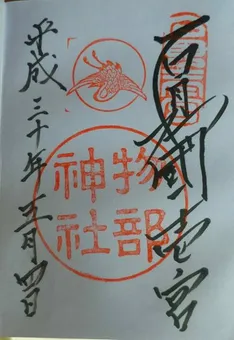 石見 壱宮
物部
神社
平成三十年五月四日